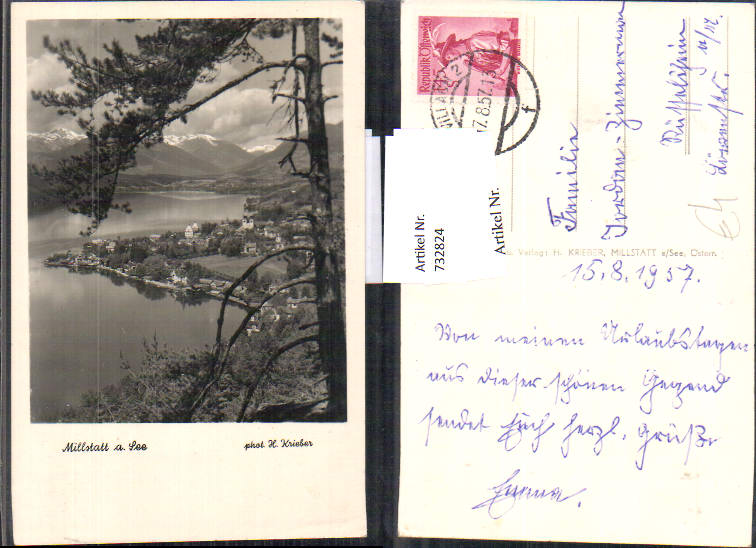 Millstatt a. See
phot. H. Krieber
Republik Österreich
17. 8. 57. 13
f
Artikel Nr.
732824
Artikel Nr.
Familie
Jordan - Zimmermann
Rüsselsheim a/M.
Verlag: H. KRIEBER, MILLSTATT a/See, Österr.
15. 8. 1957.
Von meinen Urlaubstagen
aus dieser schönen Gegend
sendet Euch herzl. Grüße
Emma.